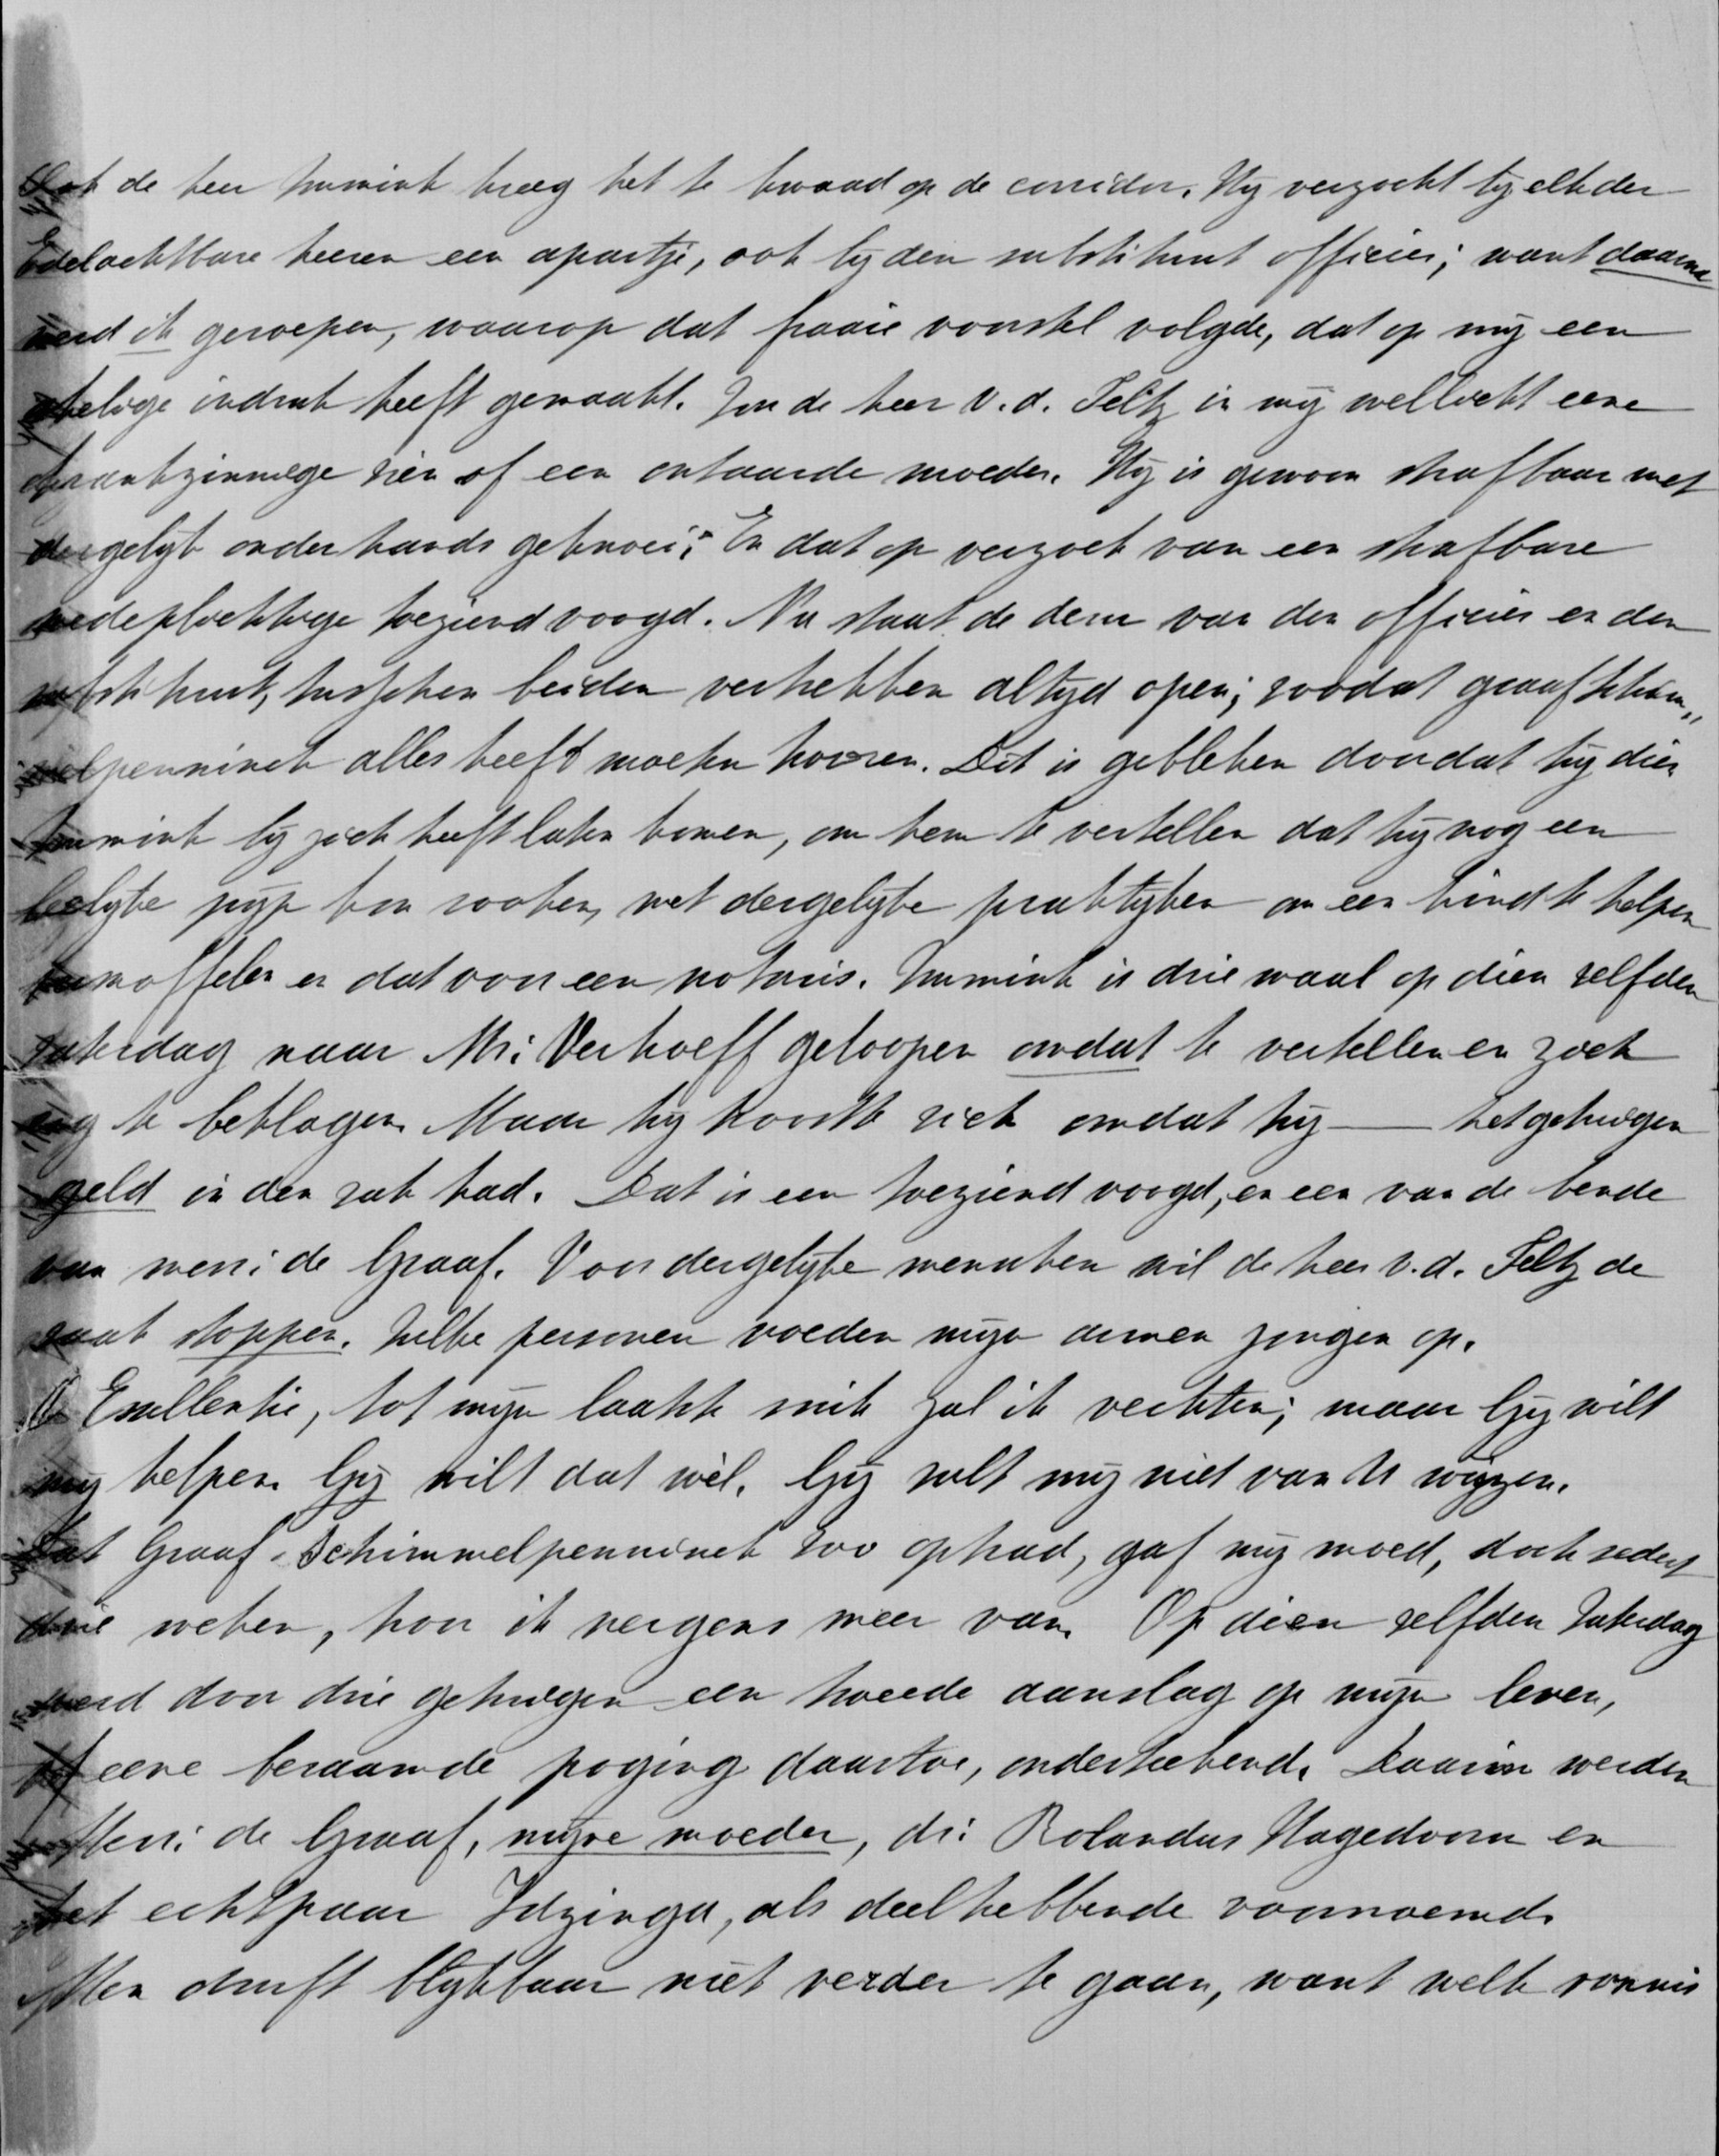 Ook de heer Immink kreeg het te kwaad op de corridor. Hij verzocht bij elk der
Edelachtbare heeren een apartje, ook bij den substituut officier; want daarna
werd ik geroepen, waarop dat fraaie voorstel volgde, dat op mij een
akelige indruk heeft gemaakt. Zou de heer v.d. Feltz in mij wellicht eene
krankzinnige zien of een ontaarde moeder. Hij is gewoon strafbaar met
dergelijk onderhands geknoei. En dat op verzoek van een strafbare
medeplichtige toeziend voogd. Nu staat de deur van den officier en den
substituut, tusschen beider vertrekken altijd open; zoodat graaf Schim„
melpenninck alles heeft moeten hooren. Dit is gebleken doordat hij dien
Immink bij zich heeft laten komen, om hem te vertellen dat hij nog een
leelijke pijp kon rooken, met dergelijke praktijken om een kind te helpen
vermoffelen en dat voor een notaris. Immink is drie maal op dien zelfden
Zaterdag naar Mr: Verhoeff geloopen om dat te vertellen en zich
nog te beklagen. Maar hij troostte zich omdat hij —— het getuigen
geld in den zak had. Dat is een toeziend voogd, en een van de bende
van mevr: de Graaf. Voor dergelijke menschen wil de heer v.d. Feltz de
zaak stoppen. Zulke personen voeden mijn armen jongen op.
O Excellentie, tot mijn laatste snik zal ik vechten; maar Gij wilt
mij helpen. Gij wilt dat wèl. Gij zult mij niet van U wijzen.
Dat Graaf Schimmelpenninck zoo optrad, gaf mij moed, doch sedert
drie weken, hoor ik nergens meer van. Op dien zelfden Zaterdag
werd door drie getuigen een tweede aanslag op mijn leven,
of eene beraamde poging daartoe, onderteekend. Daarin werden
Mevr: de Graaf, mijne moeder, dr: Rolandus Hagedoorn en
het echtpaar Idzinga, als deelhebbende voornoemd.
Men durft blijkbaar niet verder te gaan, want welk vonnis